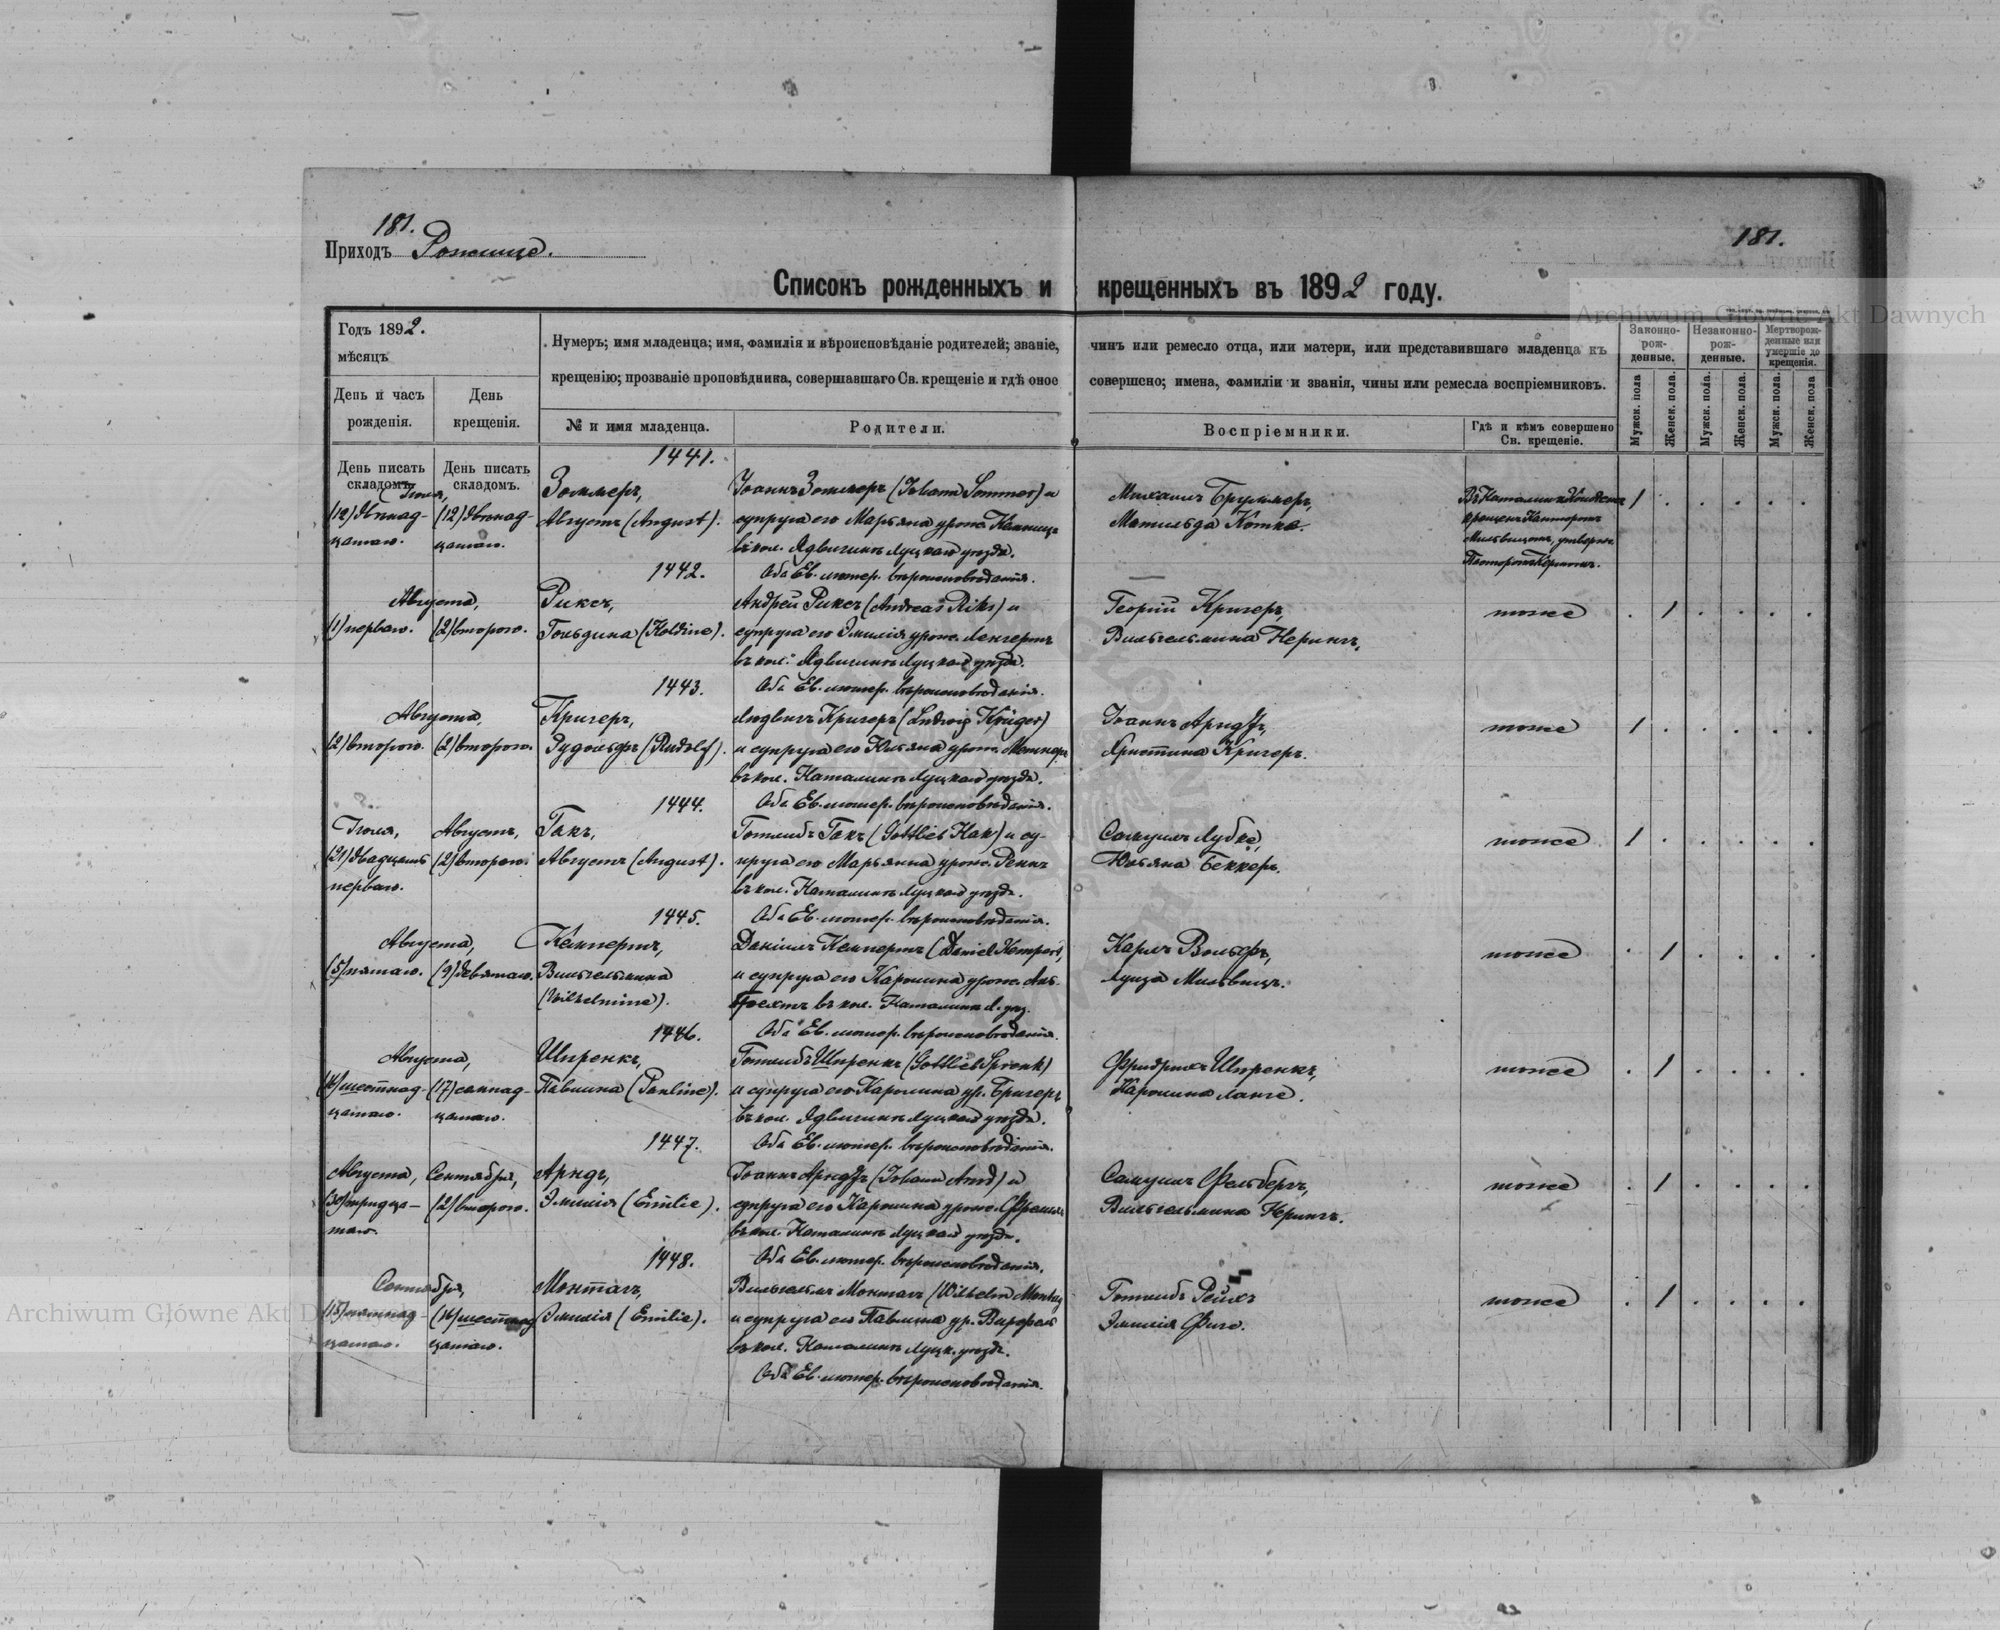 181.
Приходъ Рожище.
181.
Списокъ рожденныхъ и крещенныхъ въ 1892 году.
Archiwum Główne Akt Dawnych
Годъ 1892.
мѣсяцъ
День и часъ рожденія.
День крещенія.
Нумеръ; имя младенца; имя, фамилія и вѣроисповѣданіе родителей; званіе, чинъ или ремесло отца, или матери, или представившаго младенца къ
крещенію; прозваніе проповѣдника, совершавшаго Св. крещеніе и гдѣ оное совершено; имена, фамиліи и званія, чины или ремесла воспріемниковъ.
№ и имя младенца.
Родители.
Воспріемники.
Гдѣ и кѣмъ совершено Св. крещеніе.
Законно-рож-денные.
Незаконно-рож-денные.
Мертворож-денные или умершіе до крещенія.
Мужск. пола
Женск. пола.
Мужск. пола.
Женск. пола.
Мужск. пола.
Женск. пола
День писать складомъ.
День писать складомъ.
1441.
Іюля,
(12) двѣнад-
цатаго.
(12) двѣнад-
цатаго.
Зоммеръ,
Августъ (August).
Іоаннъ Зоммеръ (Johann Sommer) и
супруга его Марьяна урожд.
въ кол. Ядвигинъ Луцкаго уѣзда.
Оба Ев. лютер. вѣроисповѣданія.
Михаилъ Бруммеръ,
Матильда Котке.
крещенъ Канторомъ
Пасторомъ Кермомъ.
1
1442.
Августа,
(1) перваго.
(2) второго.
Риксъ,
Гольдина (Holdine).
Андрей Риксъ (Andreas Riks) и
супруга его Эмилія урожд.
въ кол. Ядвигинъ Луцкаго уѣзда.
Оба Ев. лютер. вѣроисповѣданія.
Георгій Кригеръ,
Вильгельмина Нерингъ.
тоже
1
1443.
Августа,
(2) второго.
(2) второго.
Кригеръ,
Рудольфъ (Rudolf).
Людвигъ Кригеръ (Ludwig Krüger)
и супруга его Юльяна урожд.
въ кол. Наталинъ Луцкаго уѣзда.
Оба Ев. лютер. вѣроисповѣданія.
Іоаннъ Арндтъ,
Христина Кригеръ.
тоже
1
1444.
Іюля,
(21) двадцать
перваго.
Августъ,
(2) второго.
Гакъ,
Августъ (August).
Готлибъ Гакъ (Gottlieb Hak) и су-
пруга его Марьянна урожд.
въ кол. Наталинъ Луцкаго уѣзда.
Оба Ев. лютер. вѣроисповѣданія.
Самуилъ Лубке,
Юльяна Беккеръ.
тоже
1
1445.
Августа,
(5) пятаго.
(9) девятаго.
Кемпертъ,
Вильгельмина
(Wilhelmine).
Даніилъ Кемпертъ (Daniel Kempert)
и супруга его Каролина урожд. Аль-
брехтъ въ кол. Наталинъ Л. уѣз.
Оба Ев. лютер. вѣроисповѣданія.
Карлъ Вольфъ,
Луиза Мильбицъ.
тоже
1
1446.
Августа,
(16) шестнад-
цатаго.
(17) семнад-
цатаго.
Шпренкъ,
Павлина (Pauline).
Готлибъ Шпренкъ (Gottlieb Sprenk)
и супруга его Каролина ур. Бригеръ
въ кол. Ядвигинъ Луцкаго уѣзда.
Оба Ев. лютер. вѣроисповѣданія.
Фридрихъ Шпренкъ,
Каролина Ланге.
тоже
1
1447.
Августа,
(30) тридца-
таго.
Сентября,
(2) второго.
Арндъ,
Эмилія (Emilie).
Іоаннъ Арндтъ (Johann Arnd) и
супруга его Каролина урожд.
въ кол. Наталинъ Луцкаго уѣзда.
Оба Ев. лютер. вѣроисповѣданія.
Самуилъ Фельбергъ,
Вильгельмина Нерингъ.
тоже
1
1448.
Сентября,
(15) пятнад-
цатаго.
(16) шестнад
цатаго.
Монтагъ,
Эмилія (Emilie).
Вильгельмъ Монтагъ (Wilhelm Montag)
и супруга его Павлина ур.
въ кол. Наталинъ Луцк. уѣзда.
Оба Ев. лютер. вѣроисповѣданія.
Готлибъ Рейхъ
Эмилія Фиге.
тоже
1
Archiwum Główne Akt D